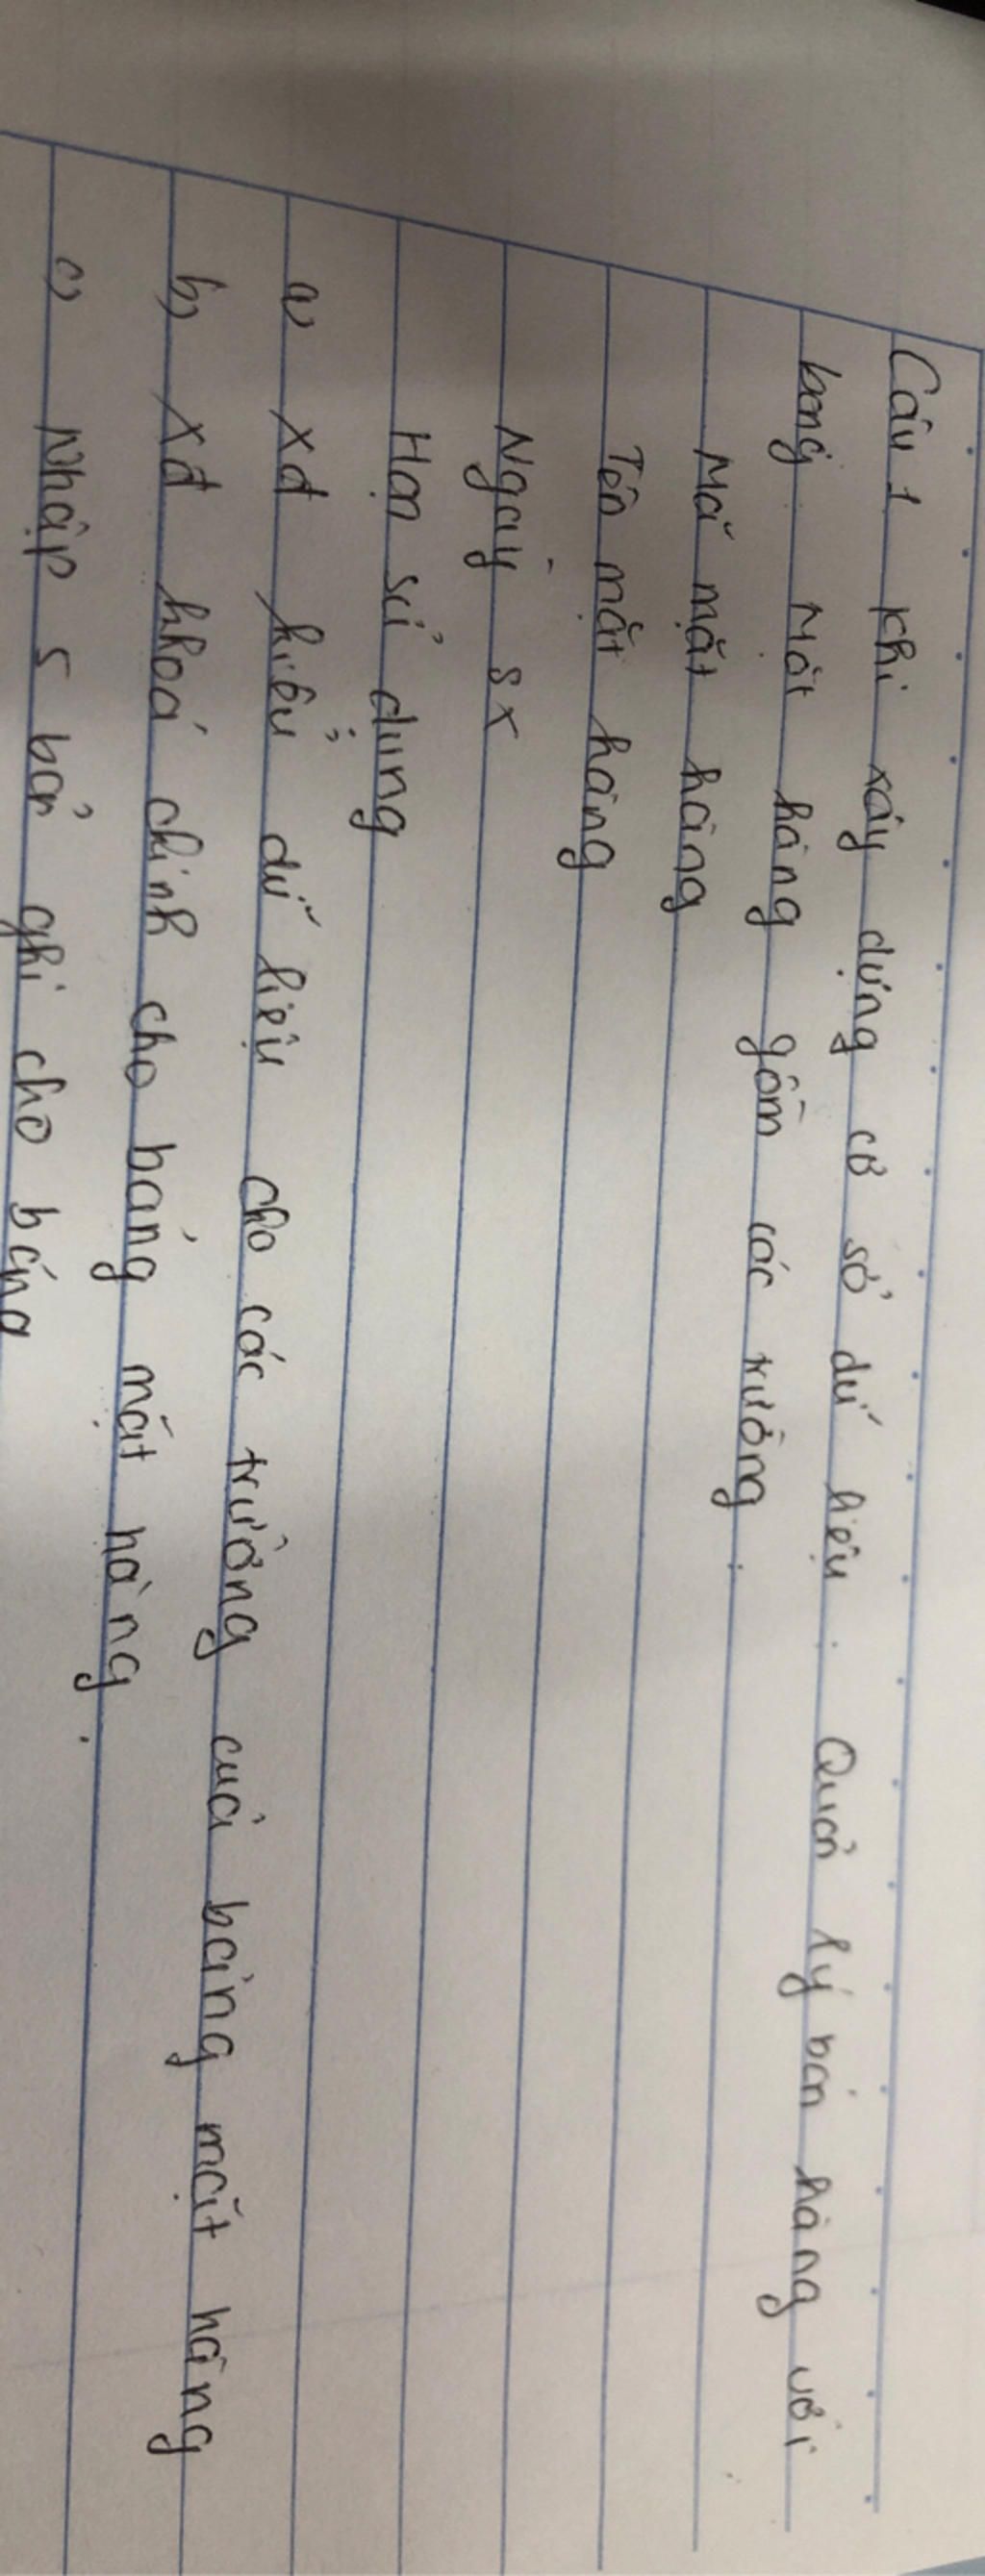 Câu 1 Khi xây dựng cơ sở dữ liệu. Quản lý bán hàng với
bảng Mặt hàng gồm các trường:
Mã mặt hàng
Tên mặt hàng
Ngày sx
Hạn sử dụng
a) xđ kiểu dữ liệu cho các trường của bảng mặt hàng
b) xđ khoá chính cho bảng mặt hàng.
c) Nhập 5 bản ghi cho bảng